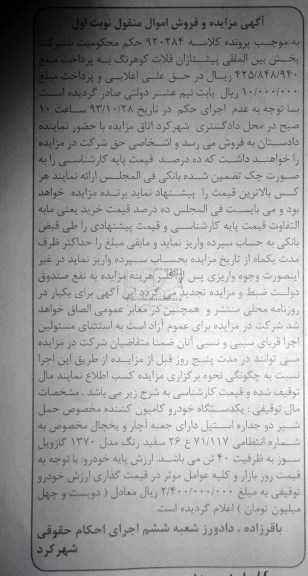 آگهی مزایده و فروش اموال منقول نوبت اول
به موجب پرونده کلاسه ۹۲۰۳۸۴ حکم محکومیت شرکت
پخش بین المللی پیشتازان فلات کوهرنگ به پرداخت مبلغ
۴۲۵/۸۴۸/۹۴۰ ریال در حق علی اعلایی و پرداخت مبلغ
۱۰/۰۰۰/۰۰۰ ریال بابت نیم عشر دولتی صادر گردیده است
با توجه به عدم اجرای حکم در تاریخ ۹۳/۱۰/۲۸ ساعت ۱۰
صبح در محل دادگستری شهرکرد اتاق مزایده با حضور نماینده
دادستان به فروش می رسد و اشخاصی حق شرکت در مزایده
را خواهند داشت که ده درصد قیمت پایه کارشناسی را به
صورت چک تضمین شده بانکی فی المجلس ارائه نمایند هر
کس بالاترین قیمت را پیشنهاد نماید برنده مزایده خواهد
بود و می بایست فی المجلس ده درصد قیمت خرید یعنی مابه
التفاوت قیمت پایه کارشناسی و قیمت پیشنهادی را طی قبض
بانکی به حساب سپرده واریز نماید و مابقی مبلغ را حداکثر ظرف
مدت یکماه از تاریخ مزایده بحساب سپرده واریز نماید در غیر
اینصورت وجوه واریزی پس از کسر هزینه مزایده به نفع صندوق
دولت ضبط و مزایده تجدید می گردد این آگهی برای یکبار در
روزنامه محلی منتشر و همچنین در معابر عمومی الصاق خواهد
شد شرکت در مزایده برای عموم آزاد است به استثنای مسئولین
اجرا قربای سببی و نسبی آنان ضمنا متقاضیان شرکت در مزایده
می توانند در مدت پنج روز قبل از مزایده از طریق این اجرا
نسبت به چگونگی نحوه برگزاری مزایده کسب اطلاع نمایند مال
توقیف شده و قیمت کارشناسی به شرح زیر می باشد . مشخصات
مال توقیفی : یکدستگاه خودرو کامیون کشنده مخصوص حمل
شیر دو جداره استیل دارای جعبه آچار و یخچال مخصوص به
شماره انتظامی ۷۱/۱۱۷ ع ۲۶ سفید رنگ مدل ۱۳۷۰ گازوئیل
سوز به ظرفیت ۴۰ تن می باشد. ارزش پایه خودرو: با توجه به
قیمت روز بازار و کلیه عوامل موثر در قیمت گذاری ارزش خودرو
توقیفی به مبلغ ۲/۴۰۰/۰۰۰/۰۰۰ ریال معادل ( دویست و چهل
میلیون تومان ) اعلام گردیده است.
باقرزاده ، دادورز شعبه ششم اجرای احکام حقوقی
شهرکرد